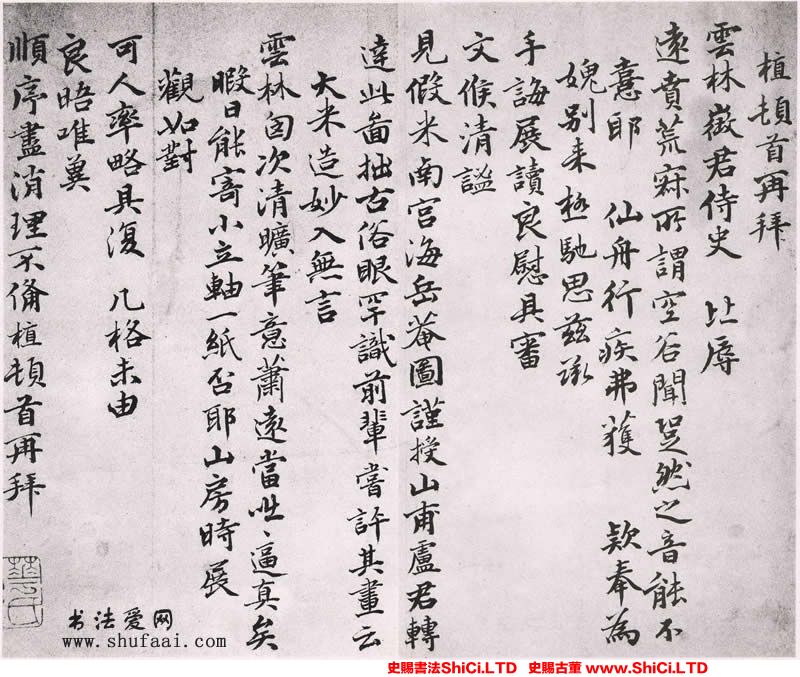 植頓首再拜
雲林徵君侍史 比辱
遠賁荒寂所謂空谷聞跫然之音能不
憙耶 仙舟行疾弗獲 欵奉為
媿別来極馳思茲承
手誨展讀良慰具審
文候清謐
見假米南宫海岳菴圖謹授山甫盧君轉
達此畵拙古俗眼罕識前輩嘗許其畫云
大米造妙入無言
雲林胷次清曠筆意蕭遠當咄咄逼真矣
暇日能寄小立軸一紙否耶山房時展
觀如對
可人率略具復 几格未由
良晤唯冀
順序盡消理不備植頓首再拜
书法爱网
www.shufaai.com
史賜書法ShiCi.LTD 史賜古董 www.ShiCi.LTD